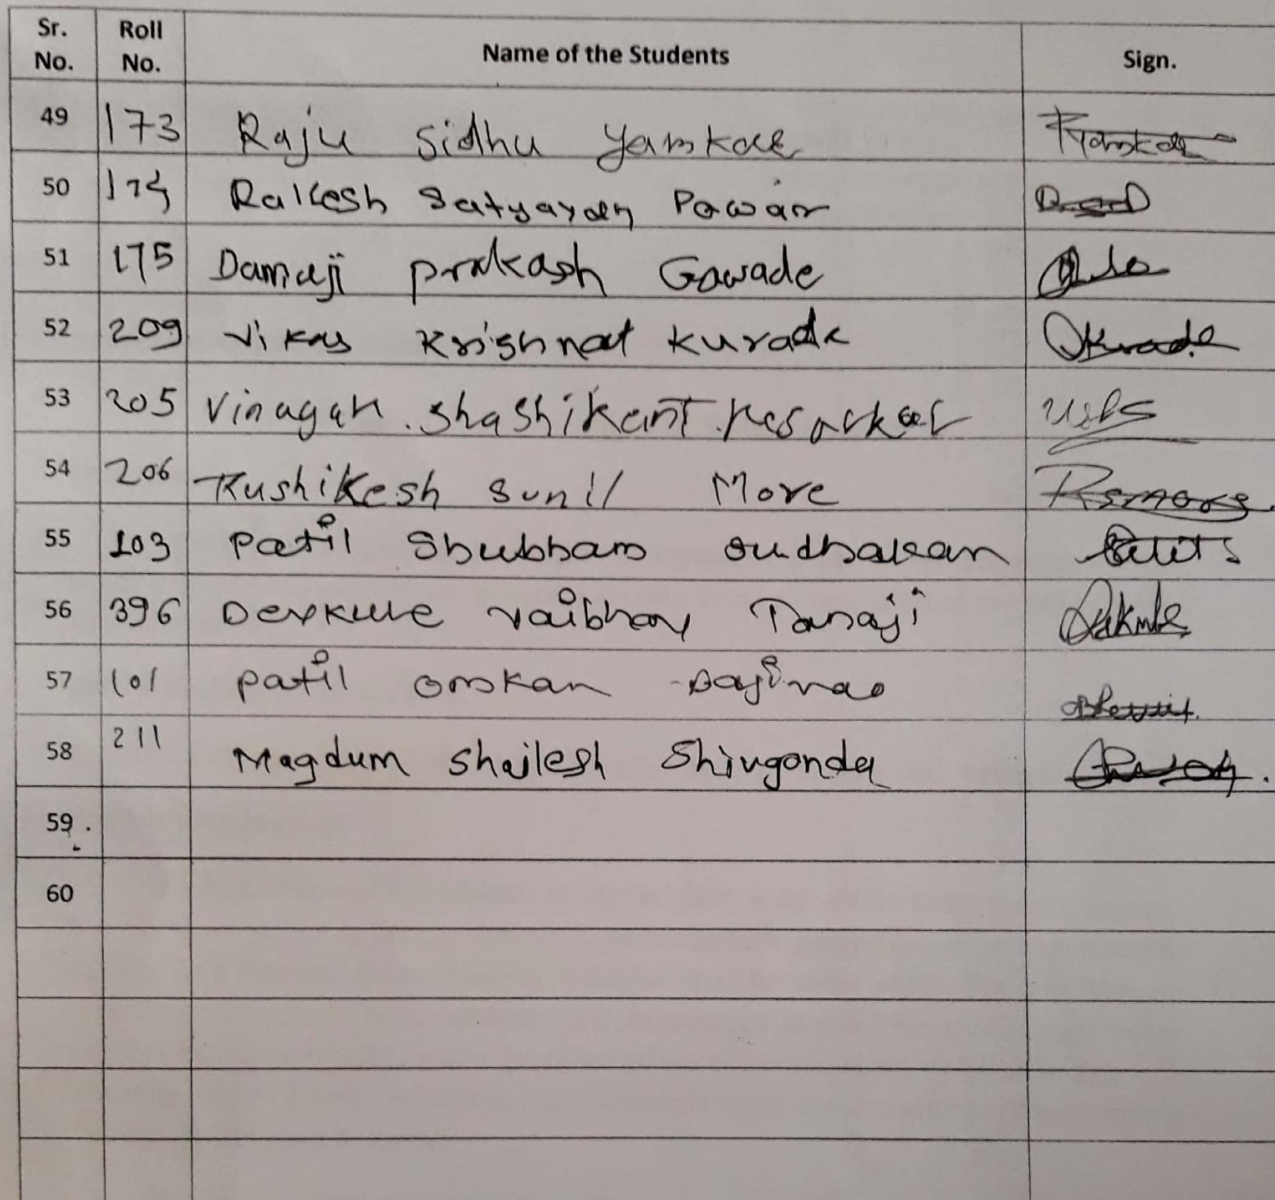 Sr. No. Roll No. Name of the Students Sign.
49 173 Raju Sidhu Yamkar
50 174 Rakesh Satyavan Pawar
51 175 Damaji prakash Gawade
52 209 Vikas Krishnat Kurade
53 205 Vinayak Shashikant Kesarkar
54 206 Rushikesh Sunil More
55 103 Patil Shubham sudhakar
56 396 Devkule Vaibhav Tanaji
57 101 patil omkar Bajirao
58 211 Magdum Shailesh Shivgonda
59.
60